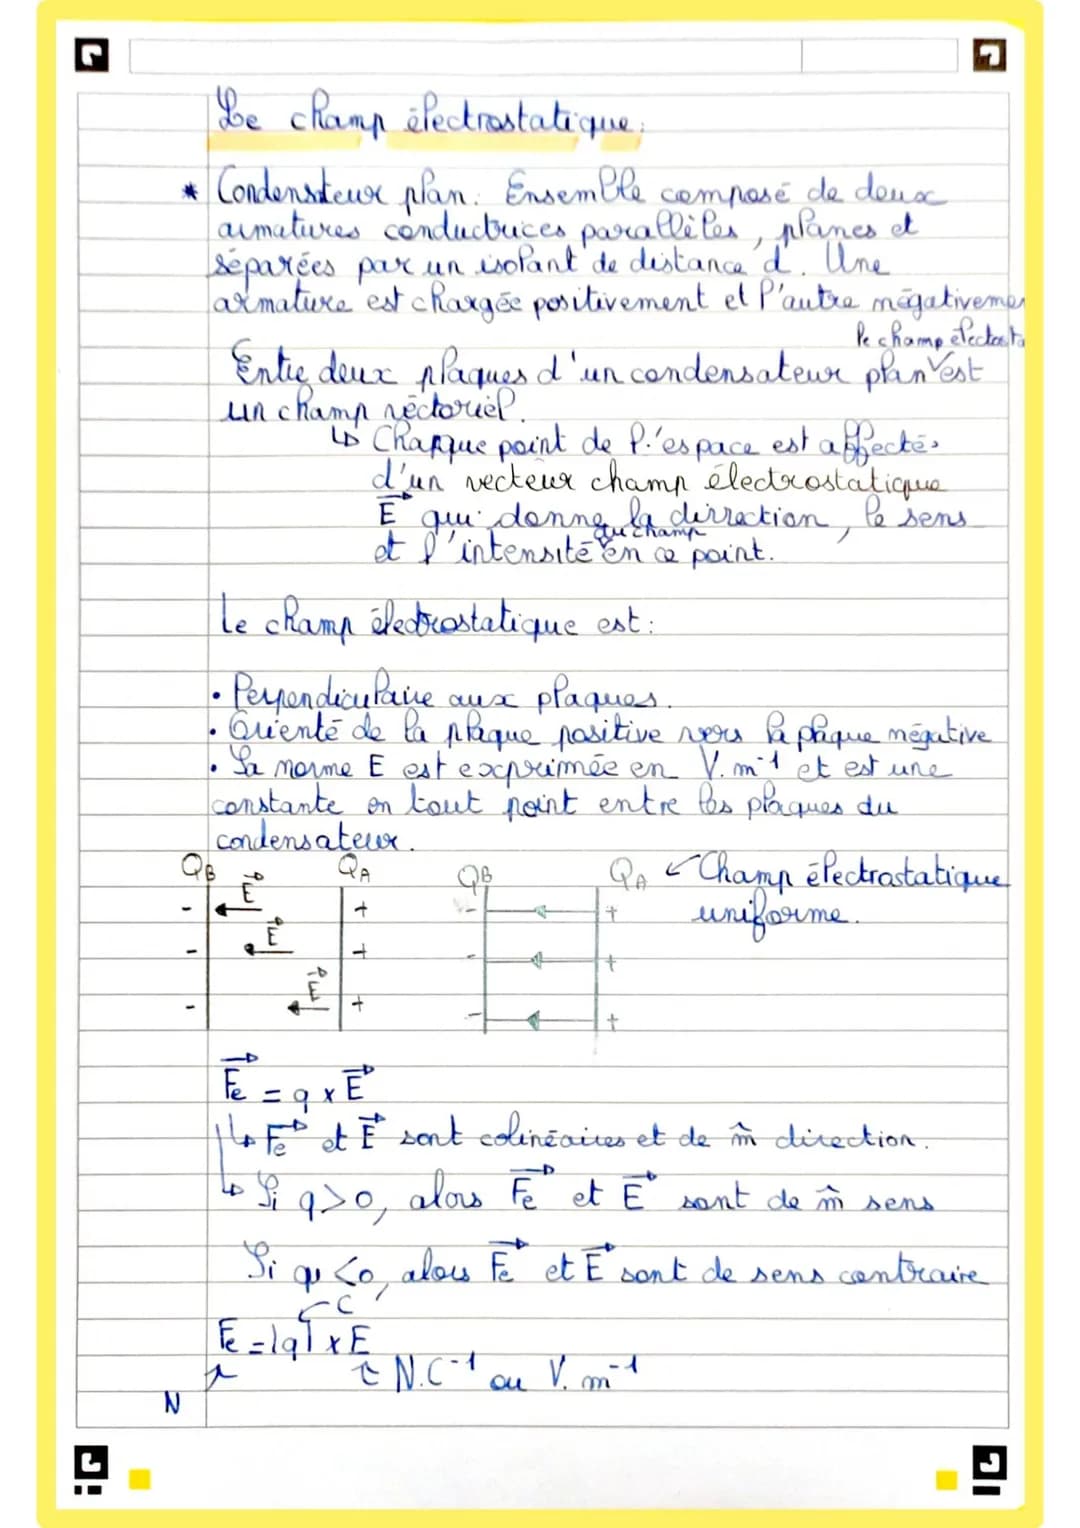 Le champ électrostatique:
* Condensateur plan: Ensemble composé de deux
armatures conductrices parallèles, planes et
séparées par un isolant de distance d. Une
armature est chargée positivement et l'autre négativemen
le champ électrosta
Entre deux plaques d'un condensateur plan est
un champ vectoriel.
↳ Chaque point de l'espace est affecté
d'un vecteur champ électrostatique
E⃗ qui donne la dirrection, le sens
du champ
et l'intensité en ce point.
Le champ électrostatique est:
• Perpendiculaire aux plaques.
• Orienté de la plaque positive vers la plaque négative
• La norme E est exprimée en V.m⁻¹ et est une
constante en tout point entre les plaques du
condensateur.
QB E⃗ QA QB QA ← Champ électrostatique
- + - + uniforme.
E⃗
- + - +
E⃗
- + - +
Fe⃗ = q x E⃗
↳ Fe⃗ et E⃗ sont colinéaires et de m̂ direction.
↳ Si q>0, alors Fe⃗ et E⃗ sont de m̂ sens
Si q <0, alors Fe⃗ et E⃗ sont de sens contraire
C
Fe = |q| x E
N.C⁻¹ ou V.m⁻¹
N